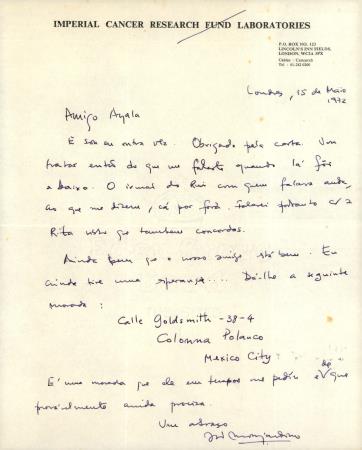 IMPERIAL CANCER RESEARCH FUND LABORATORIES
P.O. BOX NO. 123
LINCOLN'S INN FIELDS,
LONDON, WC2A 3PX
Cables : Cancearch
Tel : 01-242 0200
Londres, 15 de Maio
1972
Amigo Ayala
E sou eu outra vez. Obrigado pela carta. Vou
tratar então do que me quando lá fôr
abaixo. O irmão do Rui com quem falava anda,
ao que me dizem, cá por fora. Falarei portanto c/ a
Rita visto que tambem concordas.
Ainda bem que o nosso amigo está bem. Eu
ainda tive uma esperança.... Dá-lhe a seguinte
morada:
Calle Goldsmith -38-4
Colonna Polanco
Mexico City
É uma morada que ele em tempos me pediu e que
provavelmente ainda precisa.
Um abraço